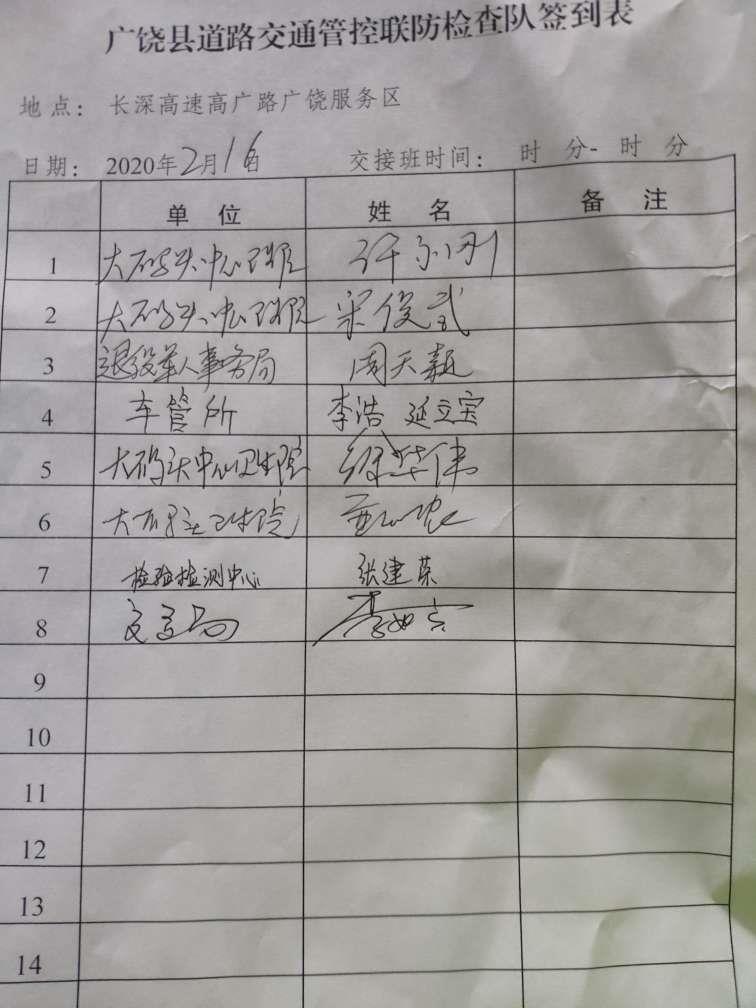 广饶县道路交通管控联防检查队签到表
地点: 长深高速高广路广饶服务区
日期: 2020年2月16日 交接班时间: 时 分- 时 分
单 位 姓 名 备 注
1 大码头中心卫生院 许永刚
2 大码头中心卫生院 宋俊武
3 退役军人事务局 周天颖
4 车管所 李浩 延立宝
5 大码头中心卫生院 徐华伟
6 大码头卫生院
7 检验检测中心 张建荣
8 李如吉
9
10
11
12
13
14